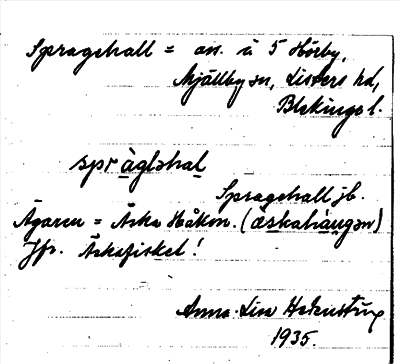 Spragehall = an. i 5 Hörby,
Mjällby sn, Listers hd,
Blekinge l.
spràgləhal
Spragehall jb.
Ägaren = Äska Håkon. (æskahàŋən)
Jfr. Äskafickel!
Anna-Lisa
1935.